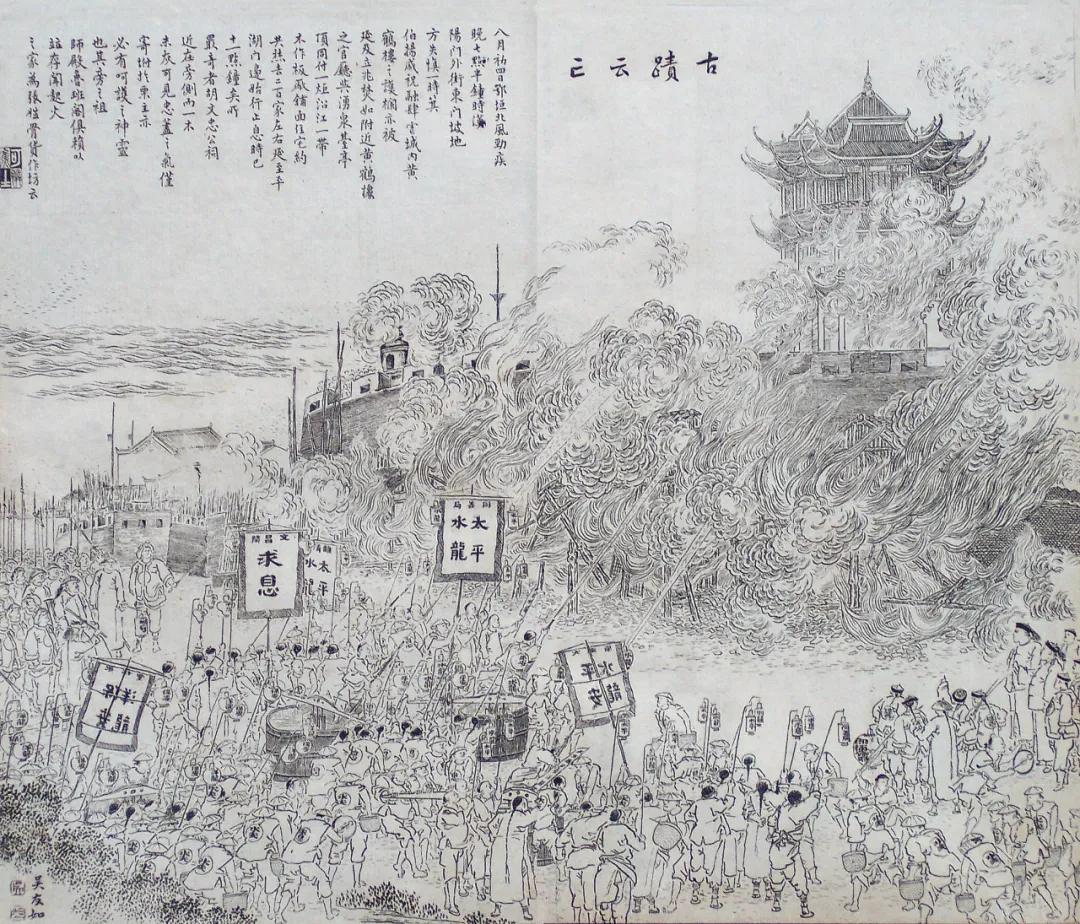 古蹟云亡
八月初四日鄂垣北風勁疾
晚七點半鐘時漢
陽門外街東門坡地
方失慎一時其
伯揚威祝融肆虐城內黃
鶴樓之護欄亦被
延及立兆焚如附近黃鶴樓
之官廳與湧泉臺亭
頂同付一炬沿江一帶
木作板廠鋪面住宅約
共燃去二百家左右延至平
湖門邊始行止息時已
十一點鐘矣所
最奇者胡文忠公祠
近在旁側而一木
未灰可見忠藎之氣僅
寄柎於栗主亦
必有呵護之神靈
也其旁之祖
師殿魯班閣俱賴以
並存聞起火
之家為張姓骨貨作坊云
同善局
太平
水龍
文昌閣
求息
清
太平
水龍
平安
水龍
洋龍
吳友如